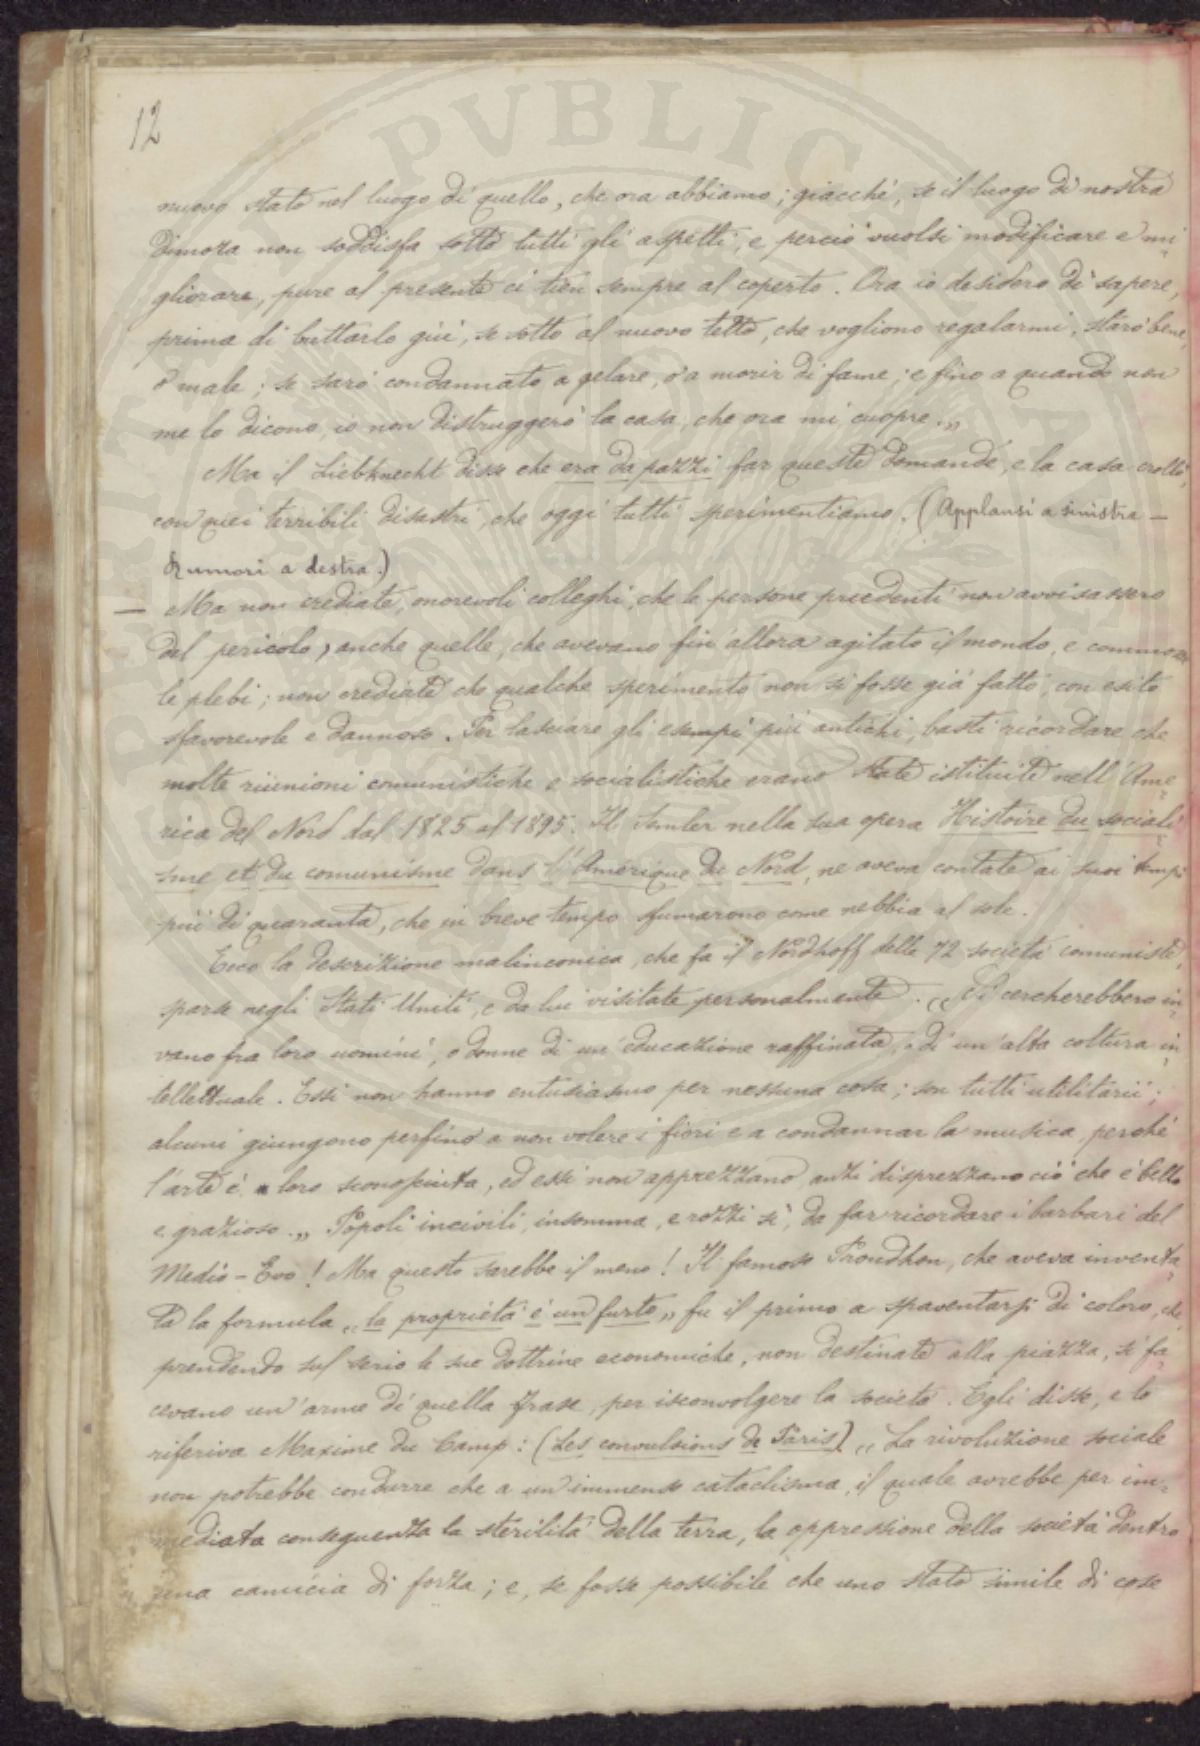 12
nuovo stato nel luogo di quello, che ora abbiamo; giacché, se il luogo di nostra
dimora non soddisfa sotto tutti gli aspetti, e perciò vuolsi modificare e mi
gliorare, pure al presente ci tien sempre al coperto. Ora io desidero di sapere,
prima di buttarlo giù, se sotto al nuovo tetto, che vogliono regalarmi, starò bene,
o male; se sarò condannato a gelare, o a morir di fame; e fino a quando non
me lo dicono, io non distruggerò la casa, che ora mi cuopre.„
Ma il Liebknecht disse che era da pazzi far queste domande, e la casa crollò,
con quei terribili disastri, che oggi tutti sperimentiamo. (Applausi a sinistra —
Rumori a destra.)
— Ma non crediate, onorevoli colleghi, che le persone precedenti non avvisassero
del pericolo, anche quelle, che avevano fin'allora agitato il mondo, e commosse
le plebi; non crediate che qualche sperimento non si fosse già fatto, con esito
sfavorevole e dannoso. Per lasciare gli esempi più antichi, basti ricordare che
molte riunioni comunistiche e socialistiche erano state istituite nell'Ame
rica del Nord dal 1825 al 1895. Il Semler nella sua opera Histoire du sociali
sme et du comunisme dans l'Amérique du Nord, ne aveva contate ai suoi tempi
più di quaranta, che in breve tempo sfumarono come nebbia al sole.
Ecco la descrizione malinconica, che fa il Nordhoff delle 72 società comuniste,
sparse negli Stati Uniti, e da lui visitate personalmente. „Si cercherebbero in
vano fra loro uomini, o donne di un'educazione raffinata, di un'alta coltura in
tellettuale. Essi non hanno entusiasmo per nessuna cosa; son tutti utilitarii;
alcuni giungono perfino a non volere i fiori e a condannar la musica, perché
l'arte è a loro sconosciuta, ed essi non apprezzano, anzi disprezzano ciò che è bello
e grazioso.„ Popoli incivili, insomma, e rozzi sì, da far ricordare i barbari del
Medio-Evo! Ma questo sarebbe il meno! Il famoso Proudhon, che aveva inventa
ta la formula „la proprietà è un furto„ fu il primo a spaventarsi di coloro, che,
prendendo sul serio le sue dottrine economiche, non destinate alla piazza, si fa
cevano un'arme di quella frase, per isconvolgere la società. Egli disse, e lo
riferiva Maxime du Camp: (Les convulsions de Paris) „La rivoluzione sociale
non potrebbe condurre che a un immenso cataclisma, il quale avrebbe per im-
mediata conseguenza la sterilità della terra, la oppressione della società dentro
una camicia di forza; e, se fosse possibile che uno stato simile di cose